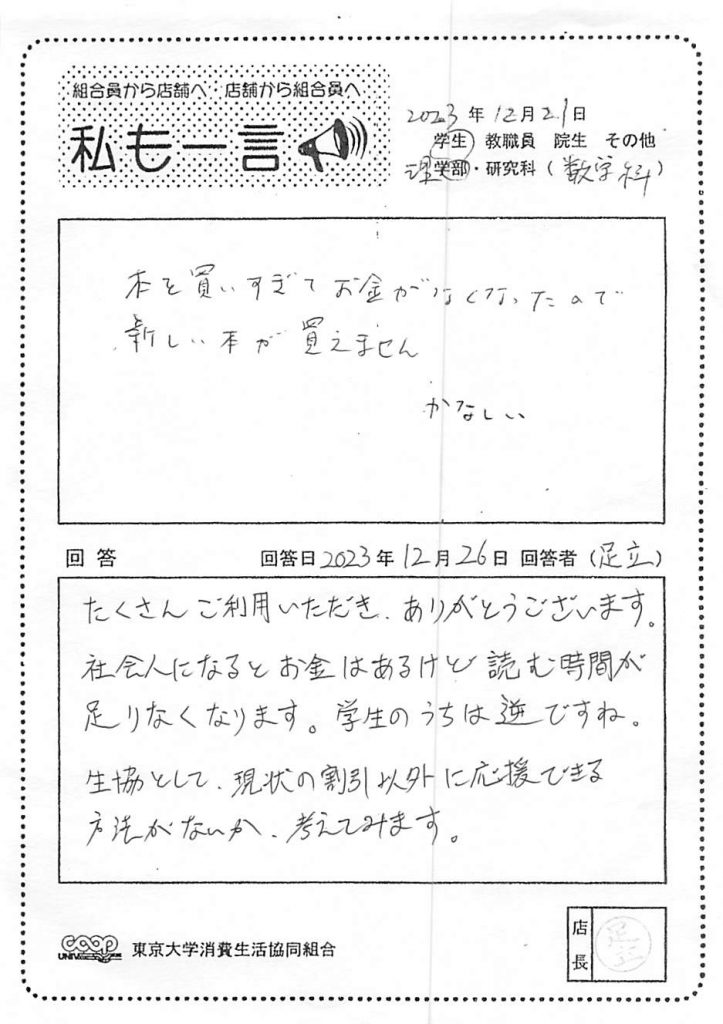 組合員から店舗へ 店舗から組合員へ
私も一言
2023年12月21日
学生 教職員 院生 その他
理学部・研究科(数学科)
本を買いすぎてお金がなくなったので
新しい本が買えません
かなしい
回答 回答日2023年12月26日 回答者(足立)
たくさんご利用いただき、ありがとうございます。
社会人になるとお金はあるけど読む時間が
足りなくなります。学生のうちは逆ですね。
生協として、現状の割引以外に応援できる
方法がないか、考えてみます。
coop
UNIV
東京大学消費生活協同組合
店長
足立